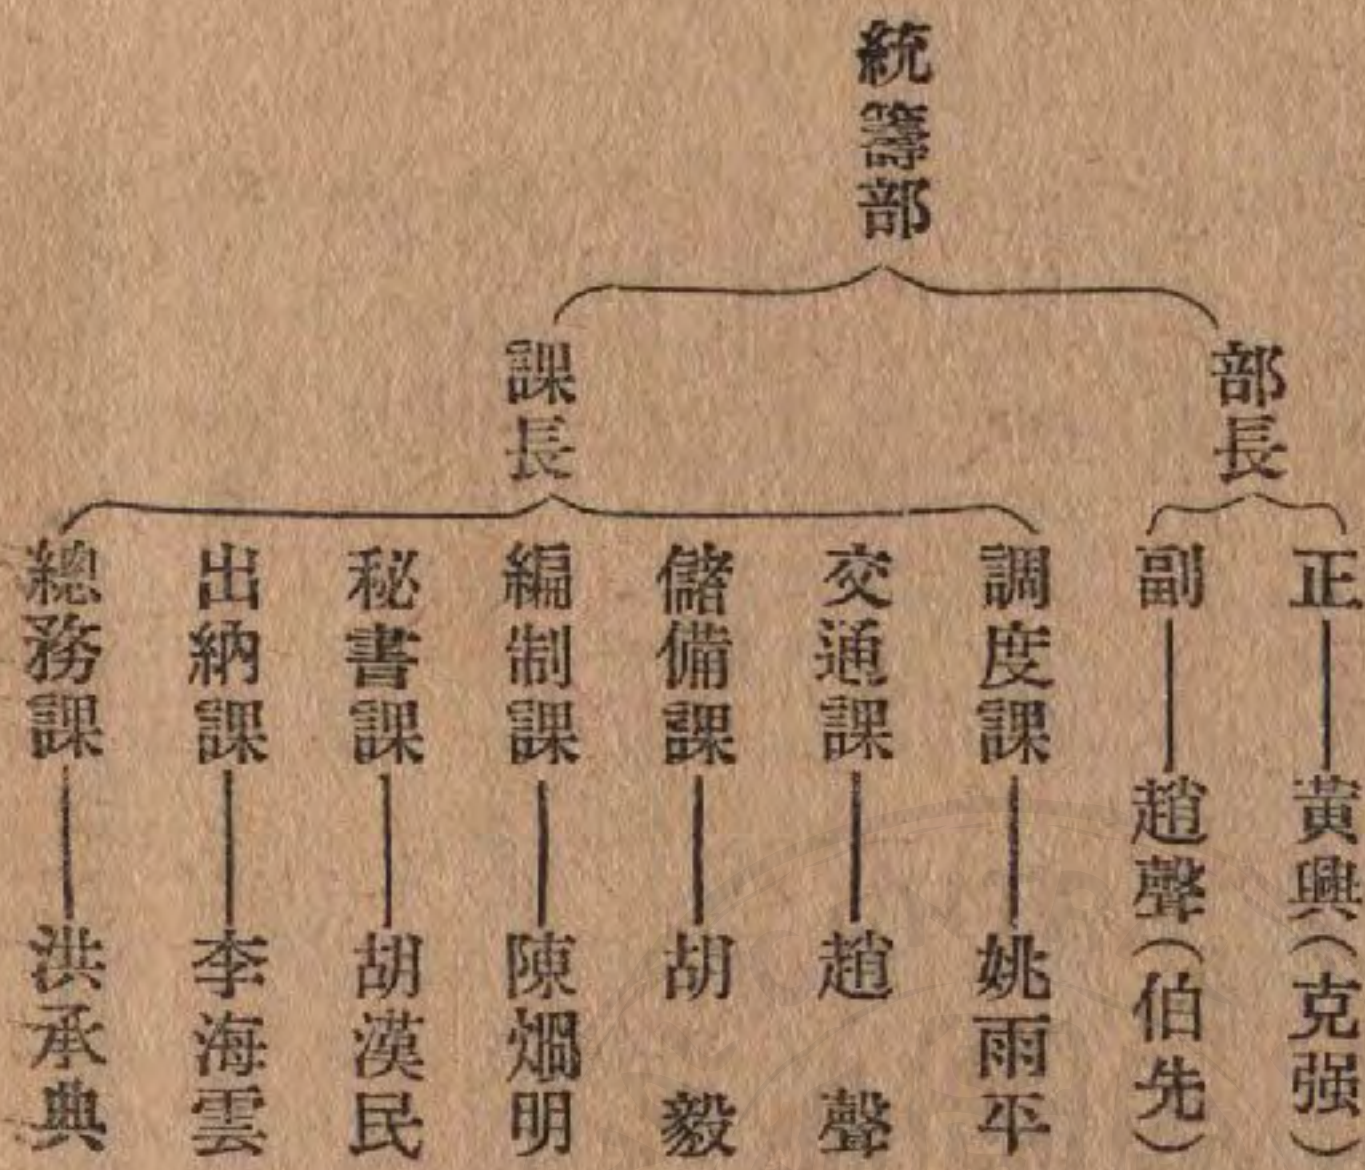 統籌部
部長
正
黃興（克强）
副
趙聲（伯先）
課長
調度課
姚雨平
交通課
趙聲
儲備課
胡毅
編制課
陳烱明
秘書課
胡漢民
出納課
李海雲
總務課
洪承典